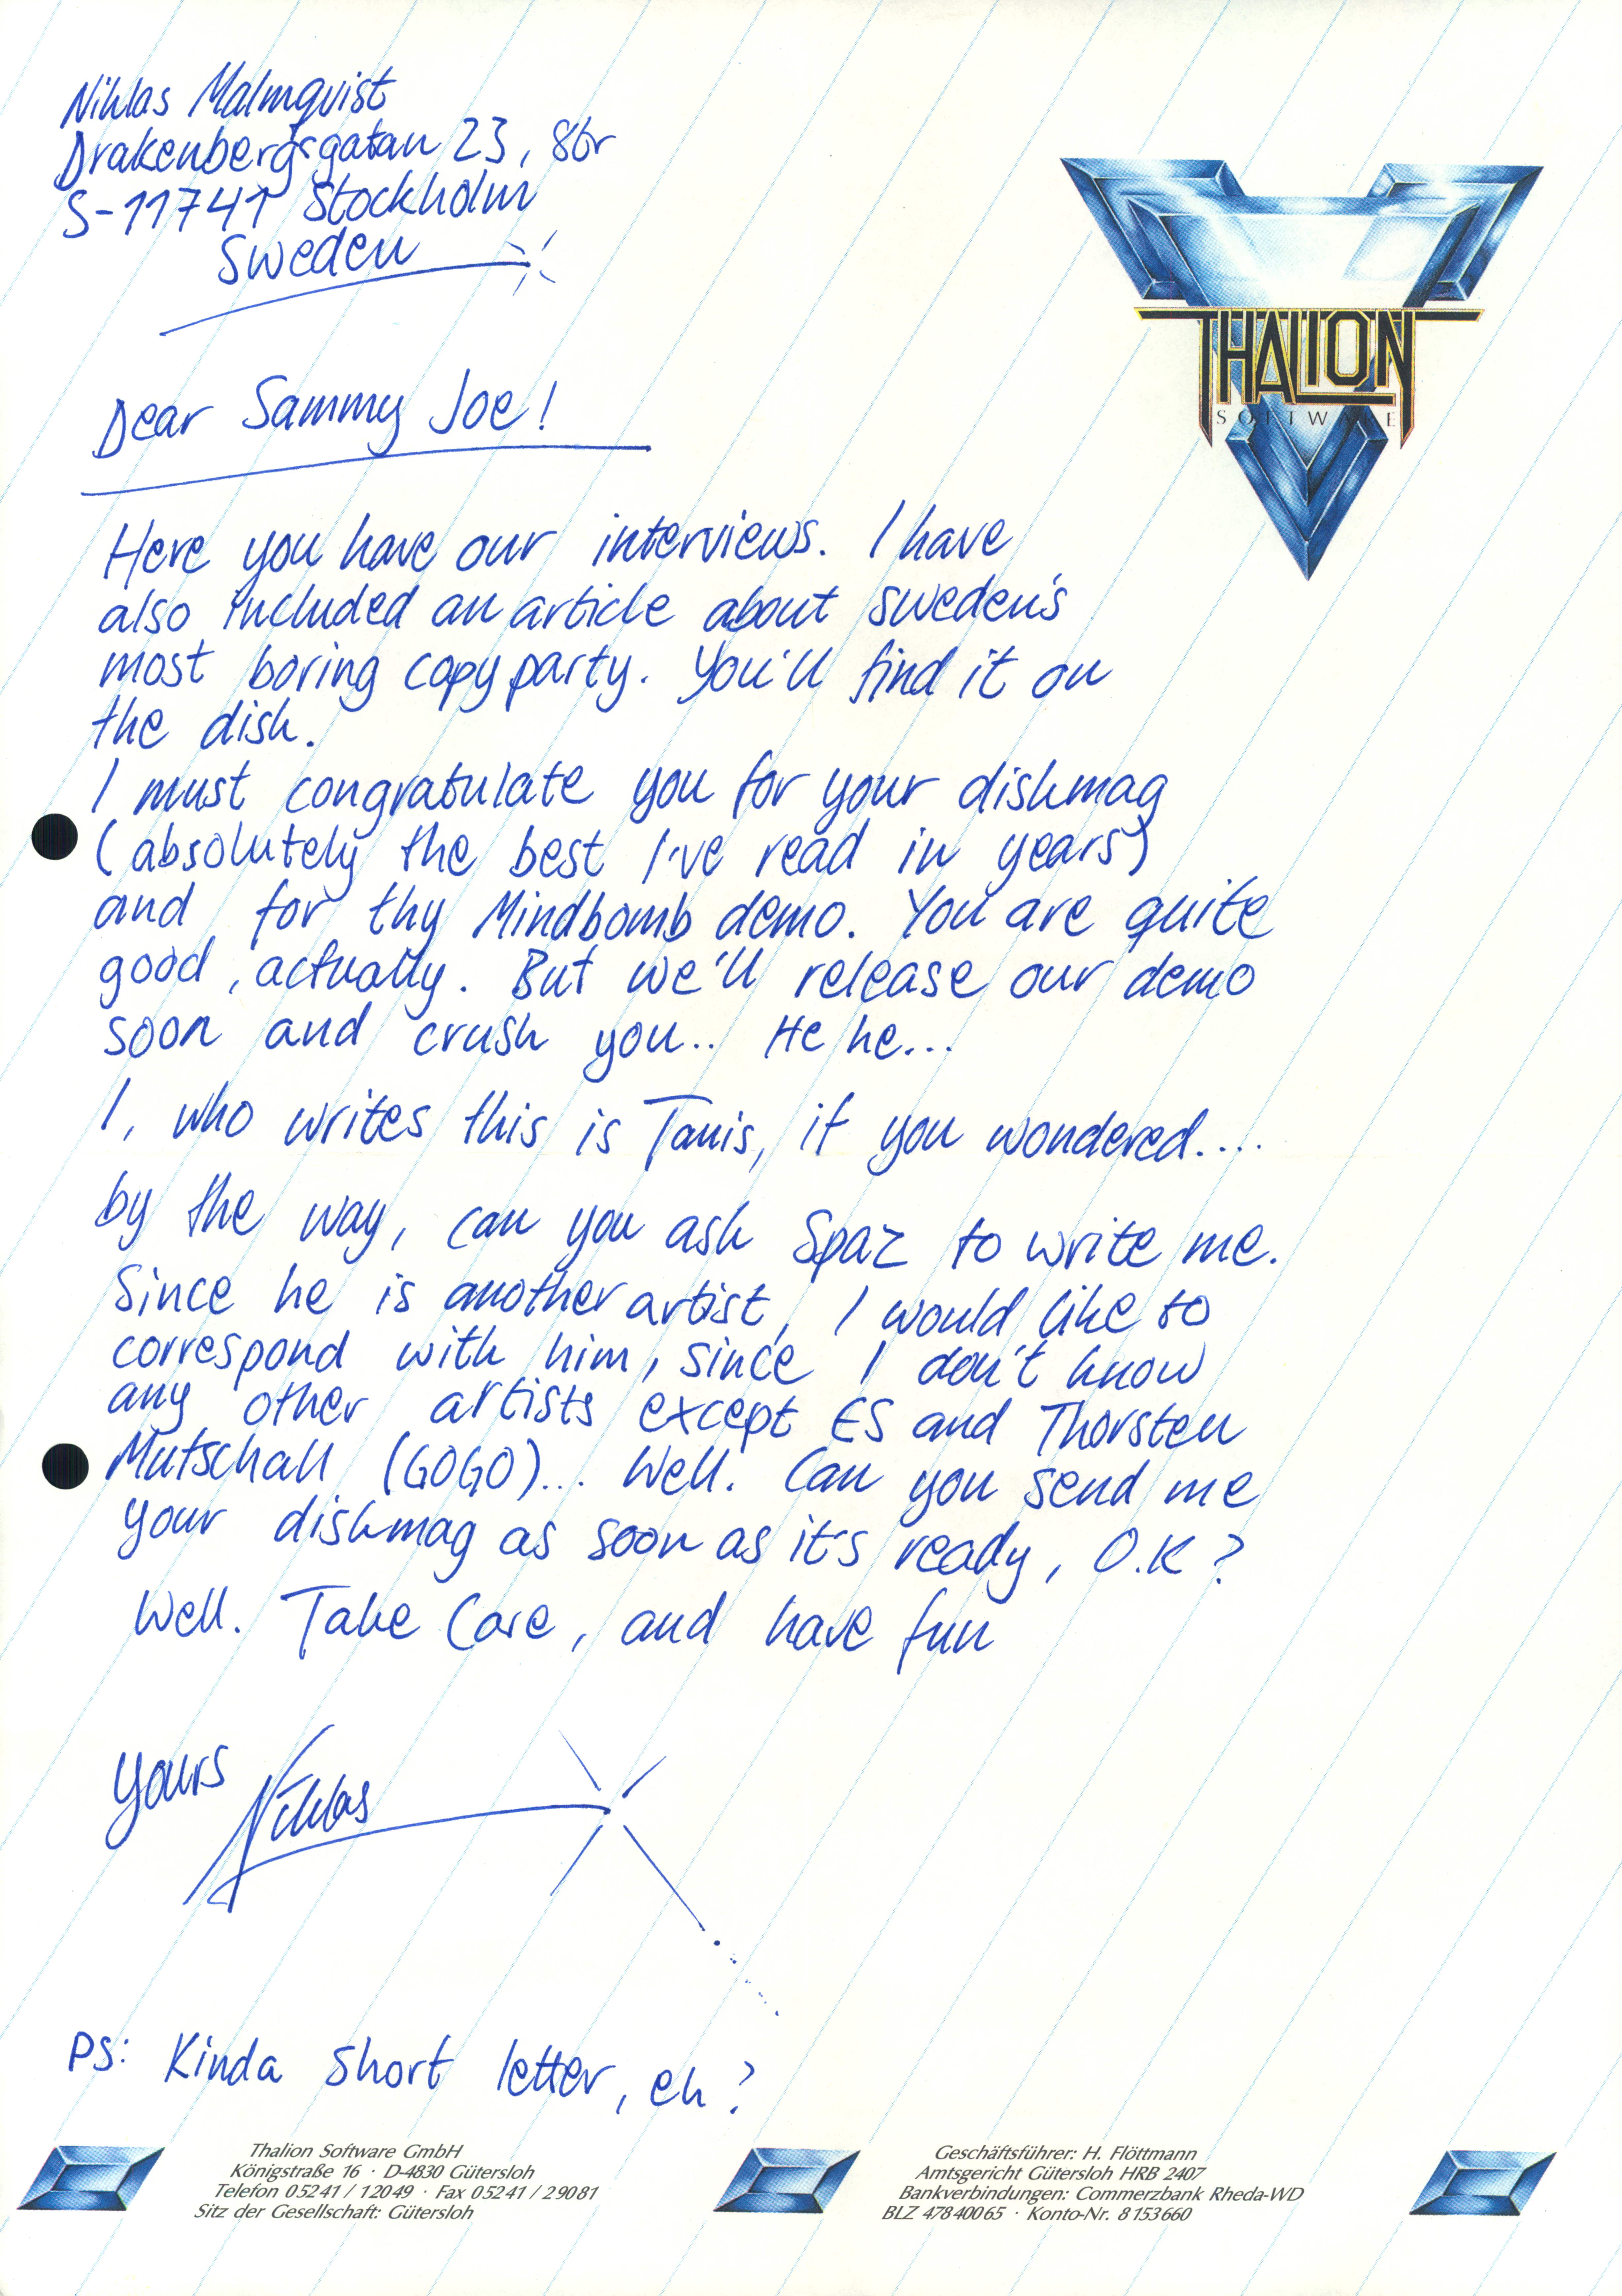 Niklas Malmqvist
Drakenbergsgatan 23, 8tr
S-11741 Stockholm
Sweden
THALION
SOFTWARE
Dear Sammy Joe!
Here you have our interviews. I have
also included an article about sweden's
most boring copyparty. You'll find it on
the disk.
I must congratulate you for your diskmag
(absolutely the best I've read in years)
and for thy Mindbomb demo. You are quite
good, actually. But we'll release our demo
soon and crush you.. He he...
I, who writes this is Tanis, if you wondered....
by the way, can you ask Spaz to write me.
Since he is another artist, I would like to
correspond with him, since I don't know
any other artists except ES and Thorsten
Mutschall (GOGO)... Well. Can you send me
your diskmag as soon as it's ready, O.K?
Well. Take Care, and have fun
yours
Niklas
PS: Kinda short letter, eh?
Thalion Software GmbH
Königstraße 16 · D-4830 Gütersloh
Telefon 05241 / 12049 · Fax 05241 / 29081
Sitz der Gesellschaft: Gütersloh
Geschäftsführer: H. Flöttmann
Amtsgericht Gütersloh HRB 2407
Bankverbindungen: Commerzbank Rheda-WD
BLZ 47840065 · Konto-Nr. 8153660